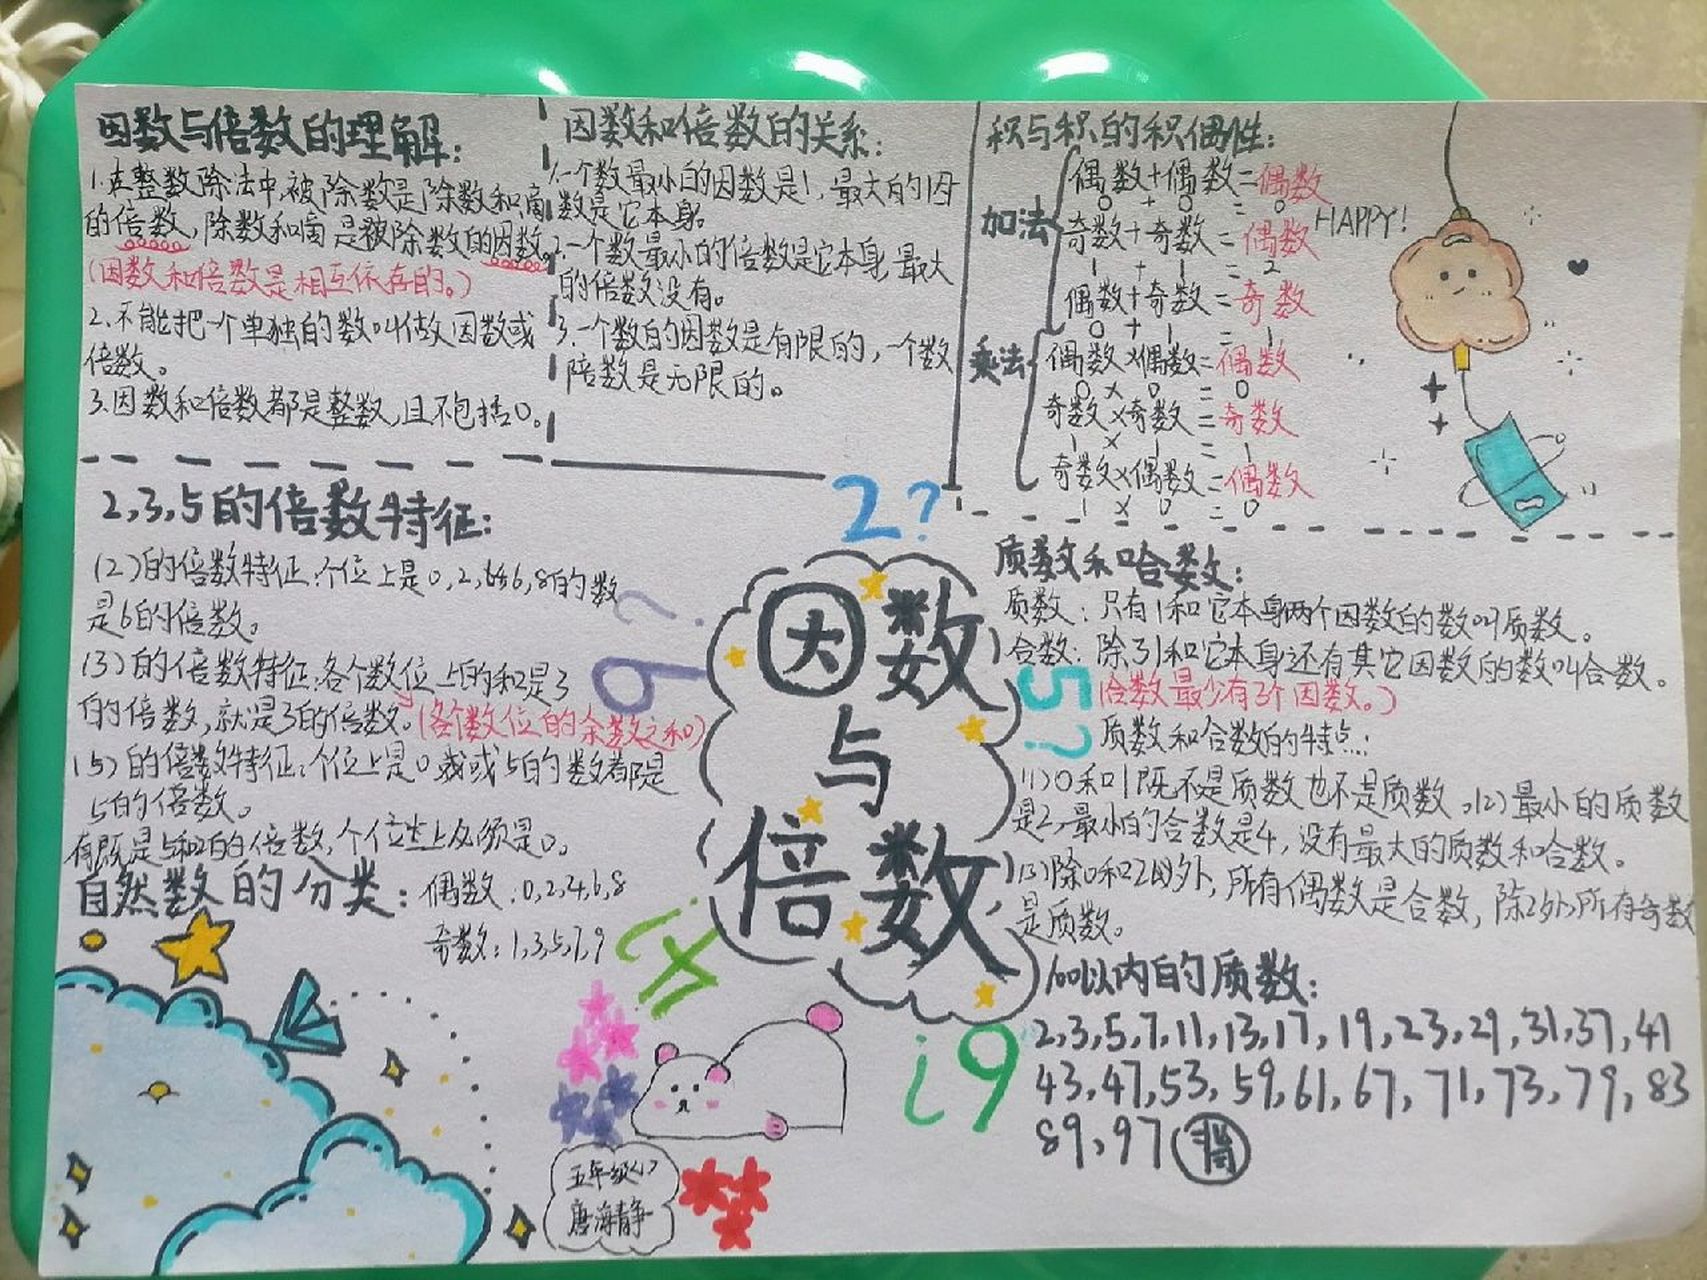 因数与倍数的理解:
1.在整数除法中,被除数是除数和商
的倍数,除数和商是被除数的因数。
(因数和倍数是相互依存的。)
2.不能把一个单独的数叫做因数或
倍数。
3.因数和倍数都是整数,且不包括0。
因数和倍数的关系:
1.一个数最小的因数是1,最大的因
数是它本身。
2.一个数最小的倍数是它本身,最大
的倍数没有。
3.一个数的因数是有限的,一个数
陪数是无限的。
积与积的积偶性:
加法
偶数+偶数=偶数
0+0=0
奇数+奇数=偶数
1+1=2
偶数+奇数=奇数
0+1=1
乘法
偶数×偶数=偶数
0×0=0
奇数×奇数=奇数
1×1=1
奇数×偶数=偶数
1×0=0
HAPPY!
2,3,5的倍数特征:
(2)的倍数特征:个位上是0,2,6,8的数
是6的倍数。
(3)的倍数特征:各个数位上的和是3
的倍数,就是3的倍数。(各个数位的余数之和)
(5)的倍数特征:个位上是0或5的数都是
5的倍数。
既是5和2的倍数,个位上必须是0。
自然数的分类:偶数:0,2,4,6,8
奇数:1,3,5,7,9
2?
6?
5?
4?
9?
因数
与
倍数
质数和哈数:
质数:只有1和它本身两个因数的数叫质数。
合数:除了1和它本身还有其它因数的数叫合数。
(合数最少有3个因数。)
质数和合数的特点:
(1)0和1既不是质数也不是质数。(2)最小的质数
是2,最小的合数是4,没有最大的质数和合数。
(3)除0和2以外,所有偶数是合数,除2外,所有奇数
是质数。
100以内的质数:
2,3,5,7,11,13,17,19,23,29,31,37,41
43,47,53,59,61,67,71,73,79,83
89,97
五年级(1)
唐海静